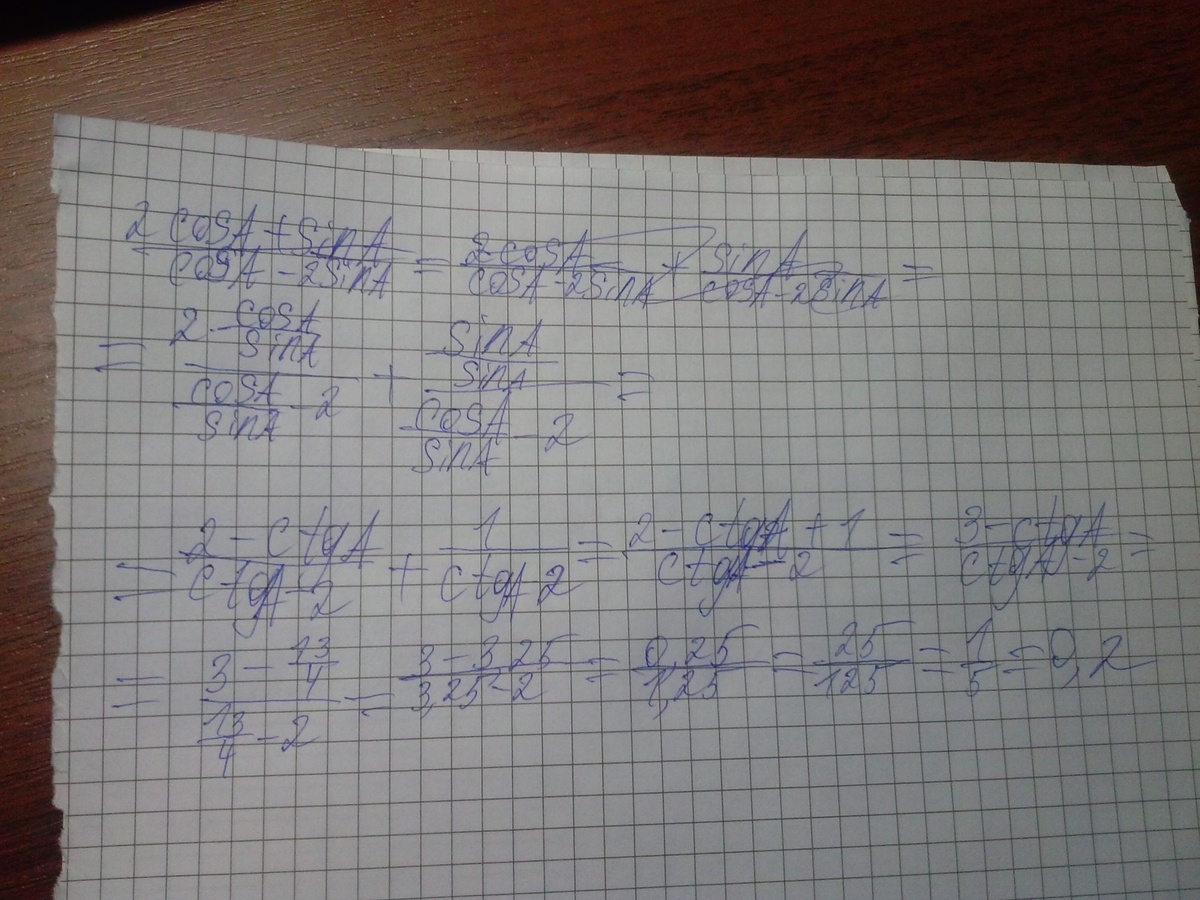 2cosA+sinA/cosA-2sinA = 2cosA/cosA-2sinA + sinA/cosA-2sinA =
= 2·cosA/sinA / cosA/sinA-2 + sinA/sinA / cosA/sinA-2 =
= 2-ctgA/ctgA-2 + 1/ctgA2 = 2-ctgA+1/ctgA-2 = 3-ctgA/ctgA-2 =
= 3-13/4 / 13/4-2 = 3-3,25/3,25-2 = 0,25/1,25 = 25/125 = 1/5 = 0,2